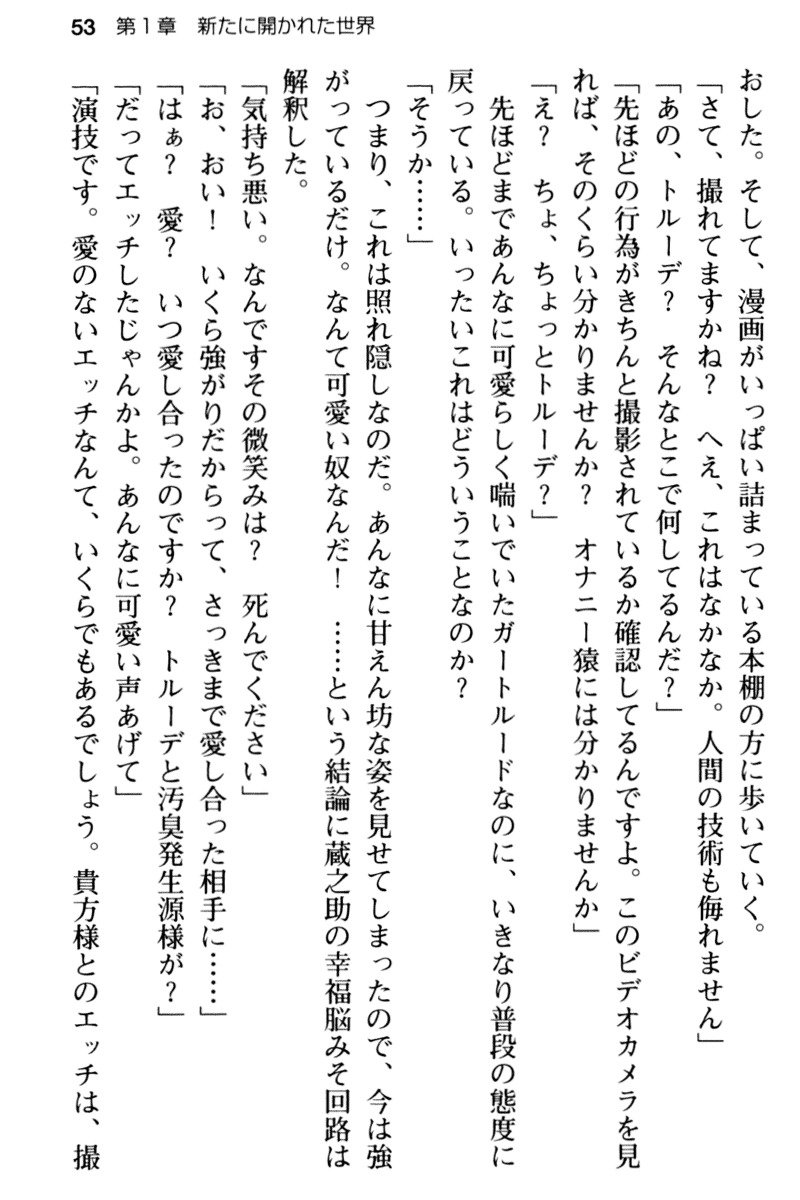 53 第１章 新たに開かれた世界
おした。そして、漫画がいっぱい詰まっている本棚の方に歩いていく。
「さて、撮れてますかね？　へえ、これはなかなか。人間の技術も侮れません」
「あの、トルーデ？　そんなとこで何してるんだ？」
「先ほどの行為がきちんと撮影されているか確認してるんですよ。このビデオカメラを見
れば、そのくらい分かりませんか？　オナニー猿には分かりませんか」
「え？　ちょ、ちょっとトルーデ？」
　先ほどまであんなに可愛らしく喘いでいたガートルードなのに、いきなり普段の態度に
戻っている。いったいこれはどういうことなのか？
「そうか……」
　つまり、これは照れ隠しなのだ。あんなに甘えん坊な姿を見せてしまったので、今は強
がっているだけ。なんて可愛い奴なんだ！　……という結論に蔵之助の幸福脳みそ回路は
解釈した。
「気持ち悪い。なんですその微笑みは？　死んでください」
「お、おい！　いくら強がりだからって、さっきまで愛し合った相手に……」
「はぁ？　愛？　いつ愛し合ったのですか？　トルーデと汚臭発生源様が？」
「だってエッチしたじゃんかよ。あんなに可愛い声あげて」
「演技です。愛のないエッチなんて、いくらでもあるでしょう。貴方様とのエッチは、撮